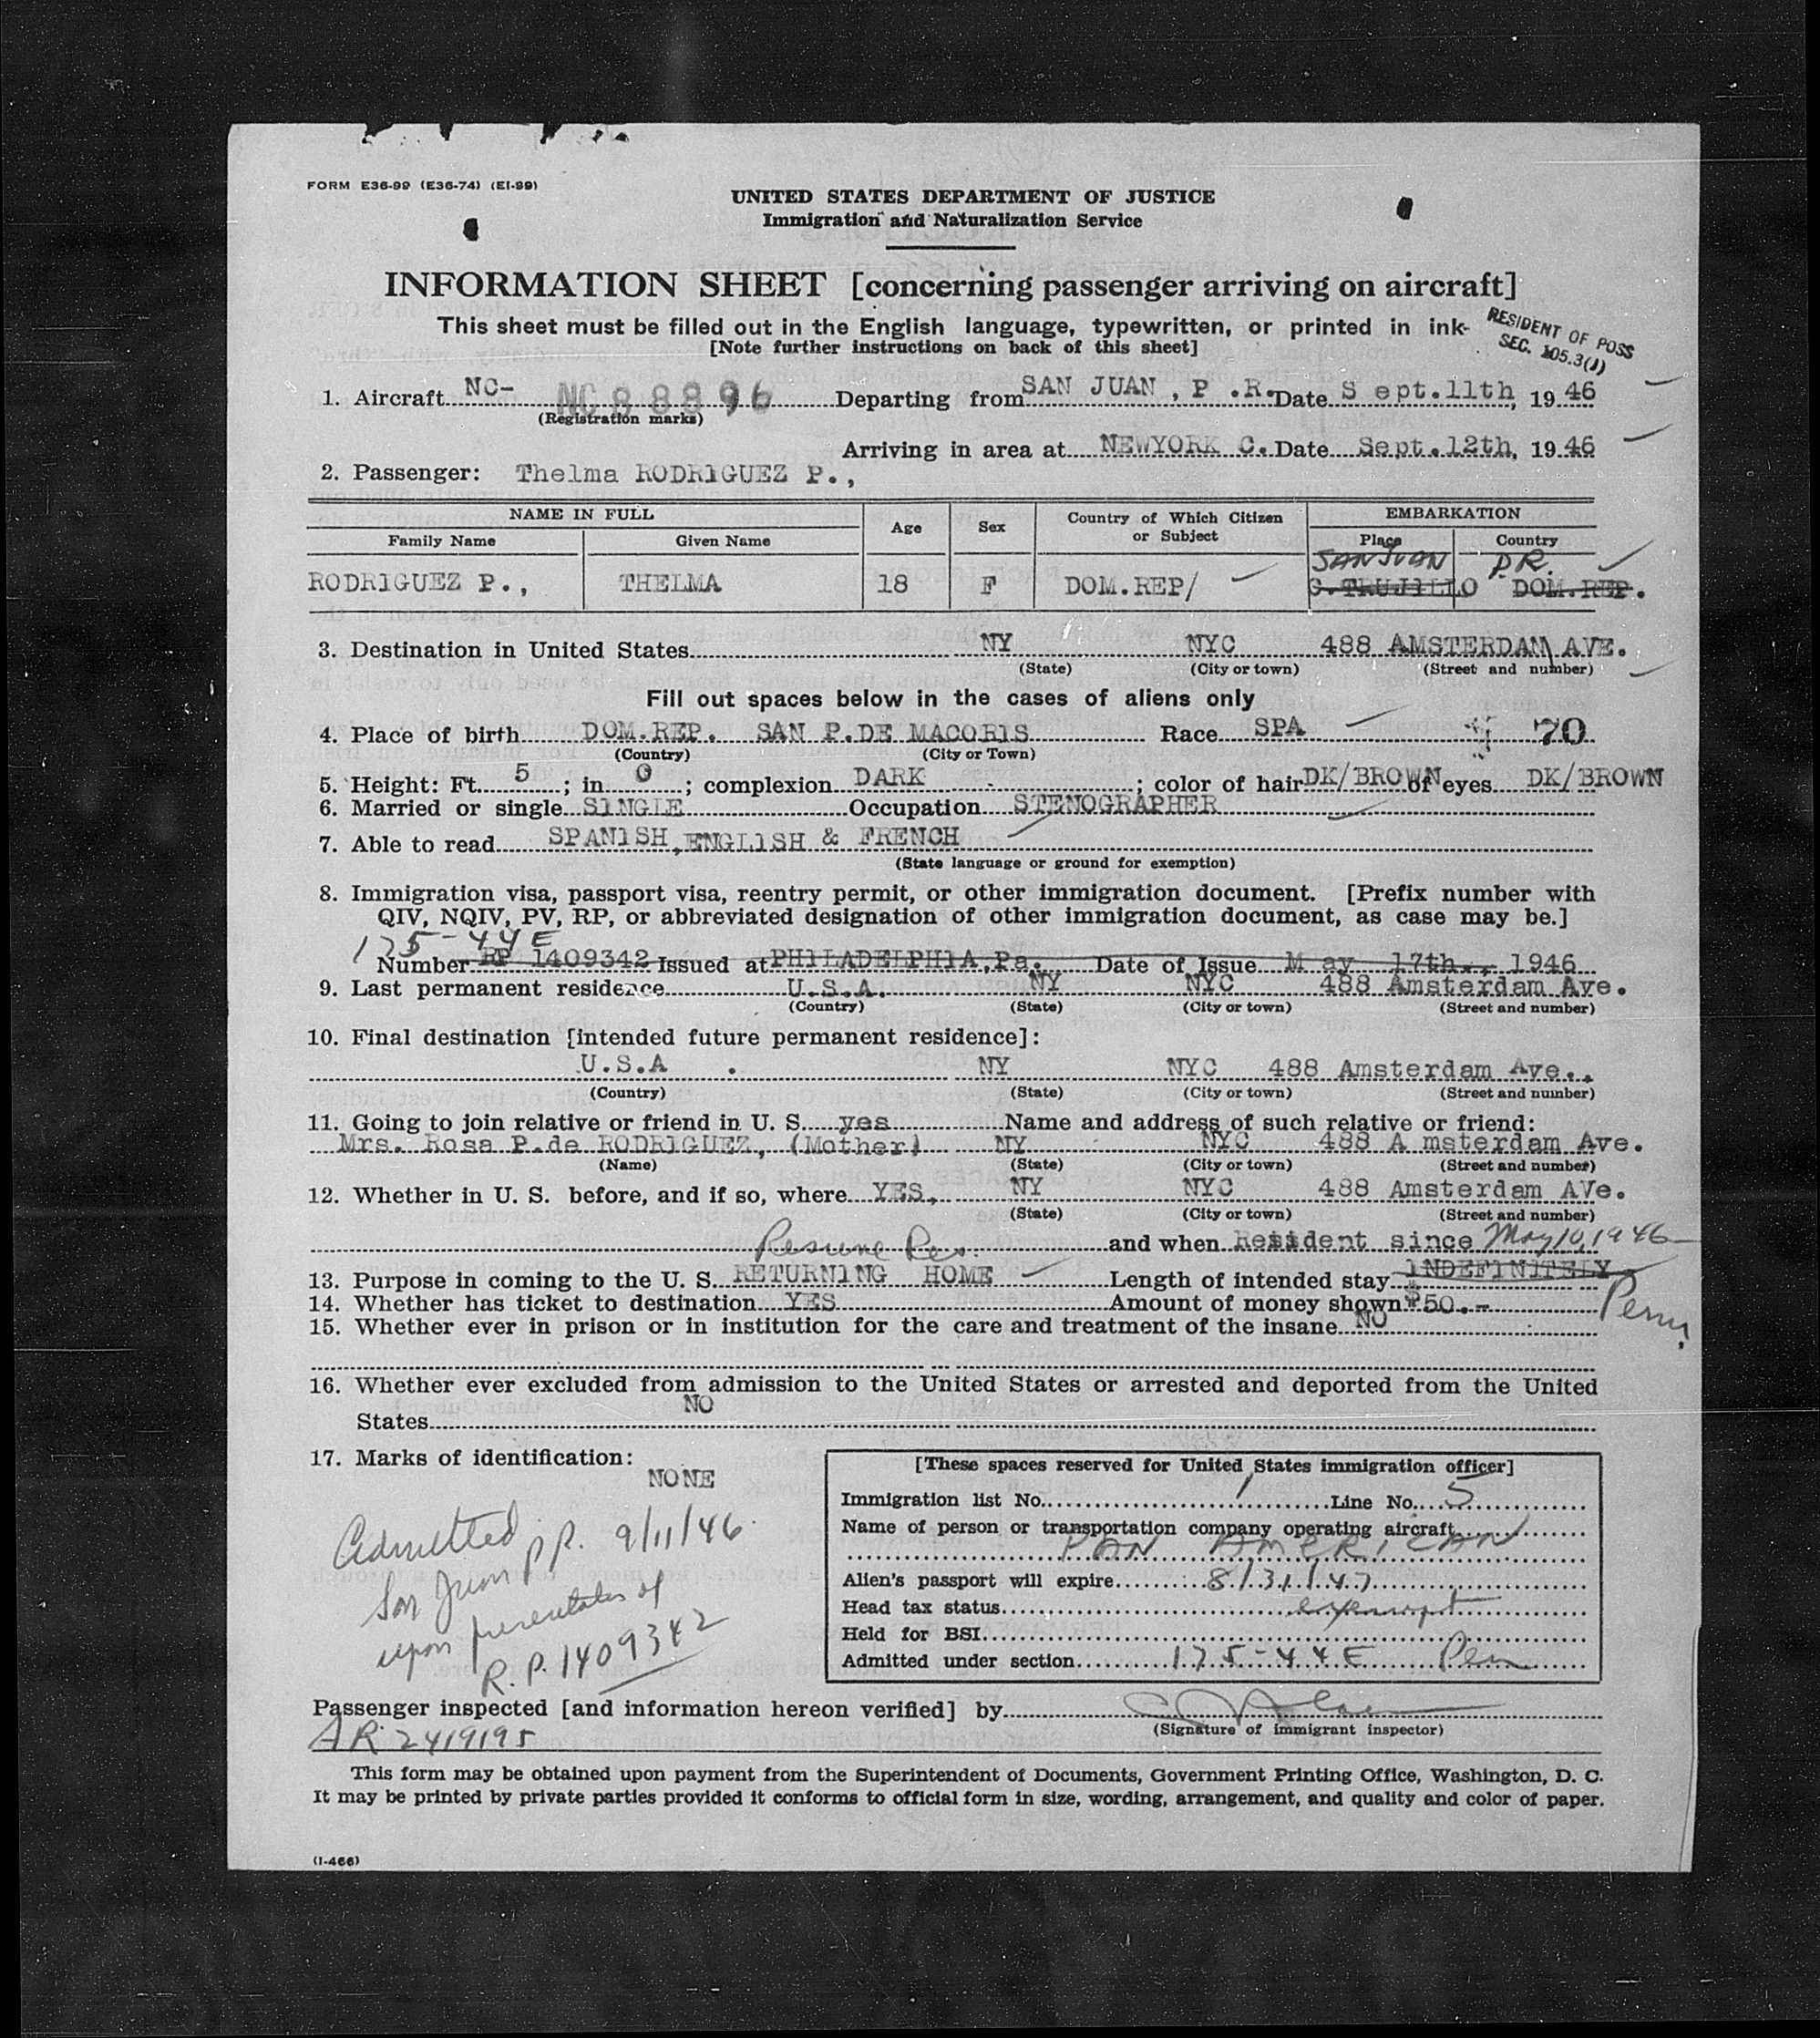 FORM E36-99 (E36-74) (EI-99)
UNITED STATES DEPARTMENT OF JUSTICE
Immigration and Naturalization Service
INFORMATION SHEET [concerning passenger arriving on aircraft]
This sheet must be filled out in the English language, typewritten, or printed in ink-
[Note further instructions on back of this sheet]
RESIDENT OF POSS
SEC. 105.3(J)
1. Aircraft NC- NC88896 Departing from SAN JUAN, P.R. Date Sept.11th, 1946
(Registration marks)
Arriving in area at NEWYORK C. Date Sept.12th, 1946
2. Passenger: Thelma RODR1GUEZ P.,
NAME IN FULL Age Sex Country of Which Citizen or Subject EMBARKATION
Family Name Given Name Place Country
SAN JUAN P.R.
RODR1GUEZ P., THELMA 18 F DOM.REP/ C.TRUJ1LLO DOM.REP.
3. Destination in United States NY NYC 488 AMSTERDAM AVE.
(State) (City or town) (Street and number)
Fill out spaces below in the cases of aliens only
4. Place of birth DOM.REP. SAN P.DE MACOR1S Race SPA 70
(Country) (City or Town)
5. Height: Ft. 5; in 0; complexion DARK; color of hair DK/BROWN of eyes DK/BROWN
6. Married or single S1NGLE Occupation STENOGRAPHER
7. Able to read SPAN1SH, ENGL1SH & FRENCH
(State language or ground for exemption)
8. Immigration visa, passport visa, reentry permit, or other immigration document. [Prefix number with
QIV, NQIV, PV, RP, or abbreviated designation of other immigration document, as case may be.]
175-44E
Number RP 1409342 Issued at PH1LADELPH1A, Pa. Date of Issue May 17th., 1946
9. Last permanent residence U.S.A. NY NYC 488 Amsterdam Ave.
(Country) (State) (City or town) (Street and number)
10. Final destination [intended future permanent residence]:
U.S.A. NY NYC 488 Amsterdam Ave.,
(Country) (State) (City or town) (Street and number)
11. Going to join relative or friend in U. S. yes Name and address of such relative or friend:
Mrs. Rosa P.de RODR1GUEZ, (Mother) NY NYC 488 A msterdam Ave.
(Name) (State) (City or town) (Street and number)
12. Whether in U. S. before, and if so, where YES, NY NYC 488 Amsterdam AVe.
(State) (City or town) (Street and number)
Resume Res. and when Resident since May 10, 1946
13. Purpose in coming to the U. S. RETURN1NG HOME Length of intended stay 1NDEF1N1TELY
Perm.
14. Whether has ticket to destination YES Amount of money shown $50.-
15. Whether ever in prison or in institution for the care and treatment of the insane NO
16. Whether ever excluded from admission to the United States or arrested and deported from the United
States NO
17. Marks of identification:
NONE
Admitted
San Juan P.R. 9/11/46
upon presentation of
R.P. 1409342
[These spaces reserved for United States immigration officer]
Immigration list No. 1 Line No. 5
Name of person or transportation company operating aircraft
PAN AMERICAN
Alien's passport will expire 8/31/47
Head tax status exempt
Held for BSI
Admitted under section 175-44E Per
Passenger inspected [and information hereon verified] by
(Signature of immigrant inspector)
AR 2419195
This form may be obtained upon payment from the Superintendent of Documents, Government Printing Office, Washington, D. C.
It may be printed by private parties provided it conforms to official form in size, wording, arrangement, and quality and color of paper.
(I-466)